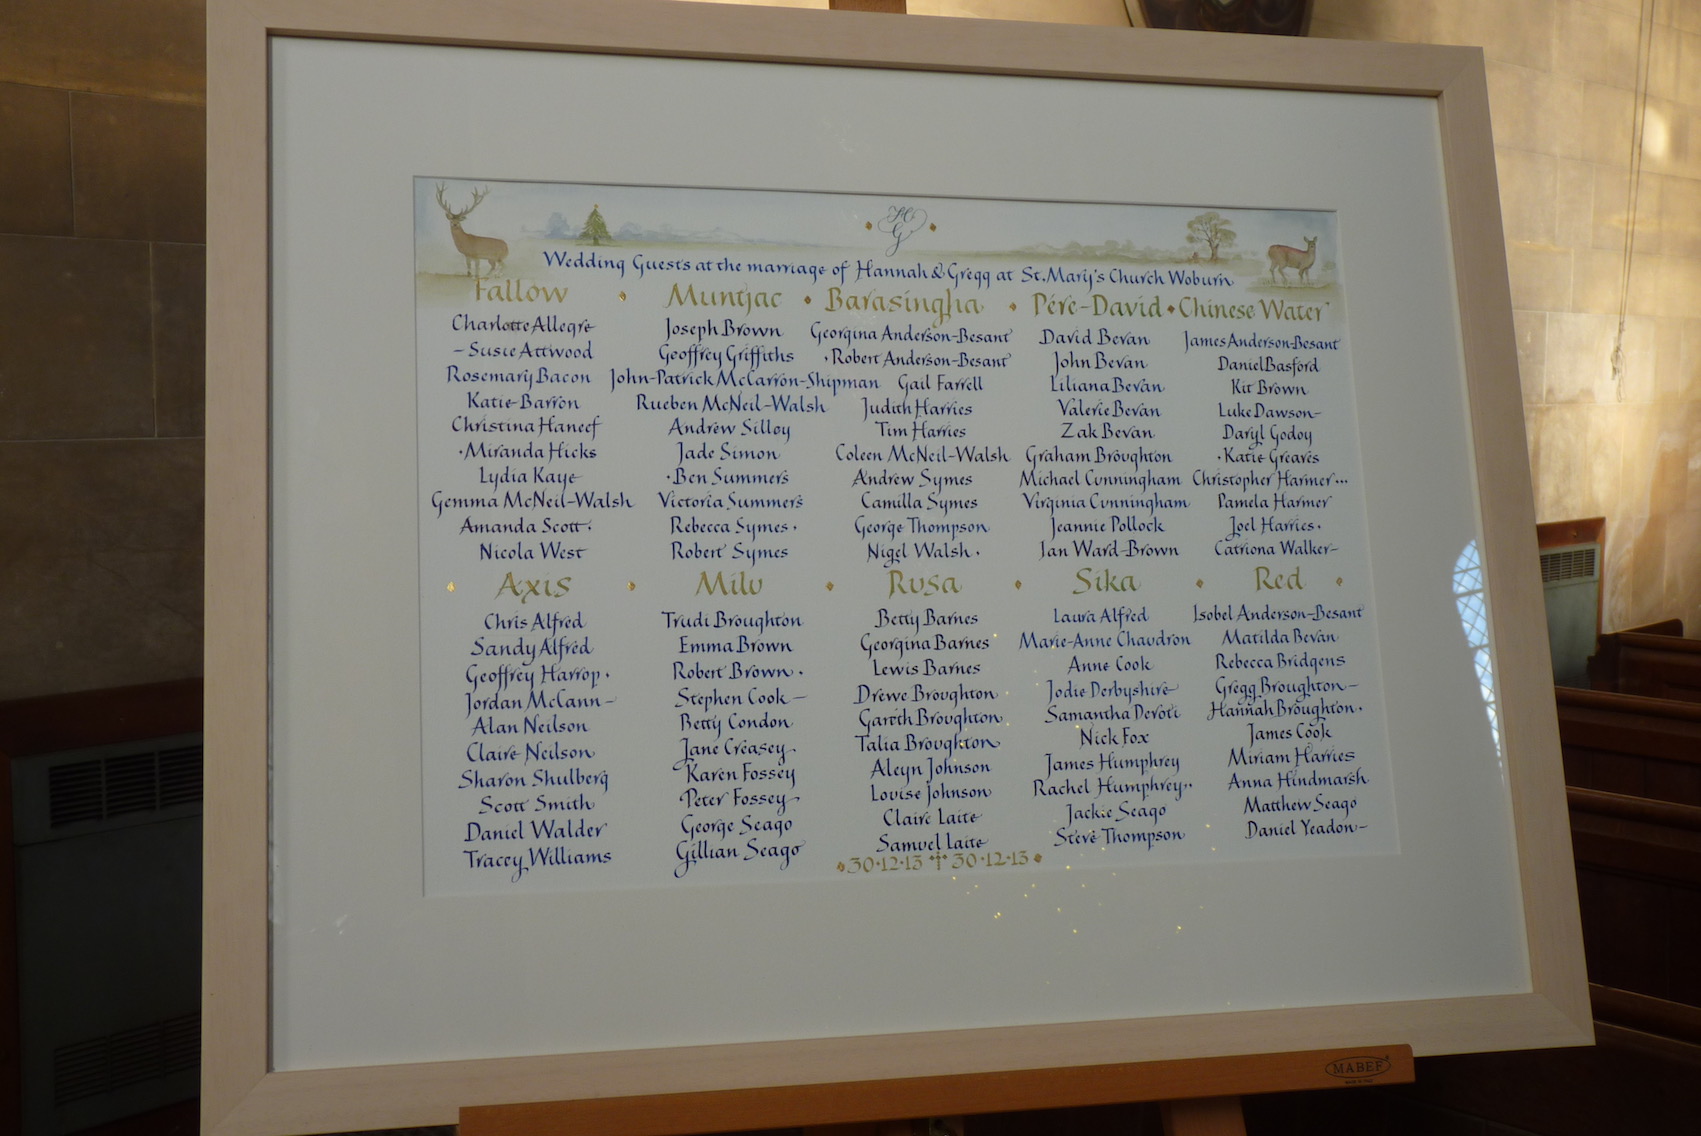 H G
Wedding Guests at the marriage of Hannah & Gregg at St. Mary's Church Woburn
Fallow
Charlotte Allegre
- Susie Attwood
Rosemary Bacon
Katie Barron
Christina Haneef
· Miranda Hicks
Lydia Kaye
Gemma McNeil-Walsh
Amanda Scott ·
Nicola West
Muntjac
Joseph Brown
Geoffrey Griffiths
John-Patrick McCarron-Shipman
Rueben McNeil-Walsh
Andrew Silloy
Jade Simon
· Ben Summers
Victoria Summers
Rebecca Symes ·
Robert Symes
Barasingha
Georgina Anderson-Besant
· Robert Anderson-Besant
Gail Farrell
Judith Harries
Tim Harries
Coleen McNeil-Walsh
Andrew Symes
Camilla Symes
George Thompson
Nigel Walsh ·
Pére-David
David Bevan
John Bevan
Liliana Bevan
Valerie Bevan
Zak Bevan
Graham Broughton
Michael Cunningham
Virginia Cunningham
Jeannie Pollock
Ian Ward-Brown
Chinese Water
James Anderson-Besant
Daniel Basford
Kit Brown
Luke Dawson-
Daryl Godoy
· Katie Greaves
Christopher Harmer...
Pamela Harmer
Joel Harries ·
Catriona Walker-
Axis
Chris Alfred
Sandy Alfred
Geoffrey Harrop ·
Jordan McCann-
Alan Neilson
Claire Neilson
Sharon Shulberg
Scott Smith
Daniel Walder
Tracey Williams
Milu
Trudi Broughton
Emma Brown
Robert Brown ·
Stephen Cook-
Betty Condon
Jane Creasey ·
Karen Fossey
Peter Fossey
George Seago
Gillian Seago
Rusa
Betty Barnes
Georgina Barnes
Lewis Barnes
Drewe Broughton
Gareth Broughton
Talia Broughton
Aleyn Johnson
Louise Johnson
Claire Laite
Samuel Laite
Sika
Laura Alfred
Marie-Anne Chaudron
Anne Cook
Jodie Derbyshire
Samantha Devoti
Nick Fox
James Humphrey
Rachel Humphrey··
Jackie Seago
Steve Thompson
Red
Isobel Anderson-Besant
Matilda Bevan
Rebecca Bridgens
Gregg Broughton-
Hannah Broughton ·
James Cook
Miriam Harries
Anna Hindmarsh
Matthew Seago
Daniel Yeadon-
30·12·13 30·12·13
MABEF